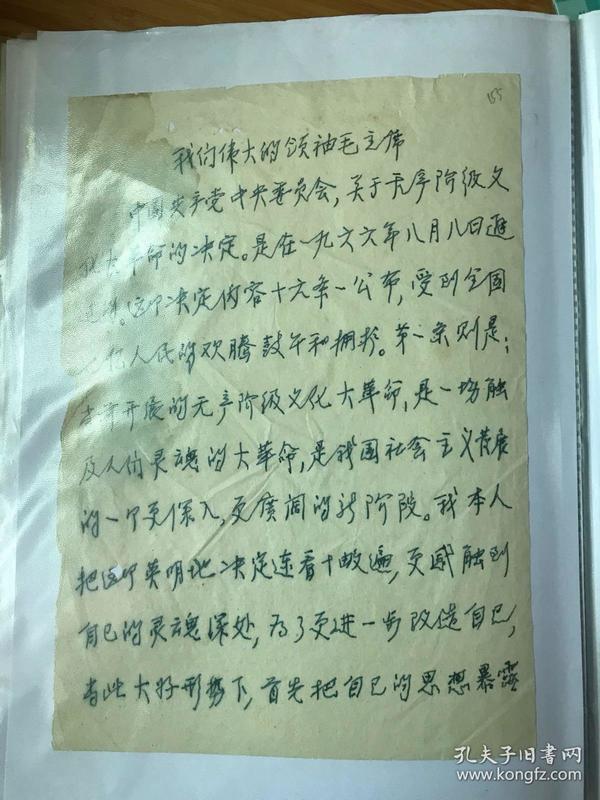 155
我们伟大的领袖毛主席
中国共产党中央委员会,关于无产阶级文
化大革命的决定。是在一九六六年八月八日通
过的。这个决定内容十六条一公布,受到全国
人民的欢腾鼓午和拥护。第一条则是:
当前开展的无产阶级文化大革命,是一场触
及人们灵魂的大革命,是我国社会主义发展
的一个更深入、更广阔的新阶段。我本人
把这个英明地决定连看十数遍,更感触到
自己的灵魂深处,为了更进一步改造自己,
当此大好形势下,首先把自己的思想暴露
孔夫子旧书网
www.kongfz.com